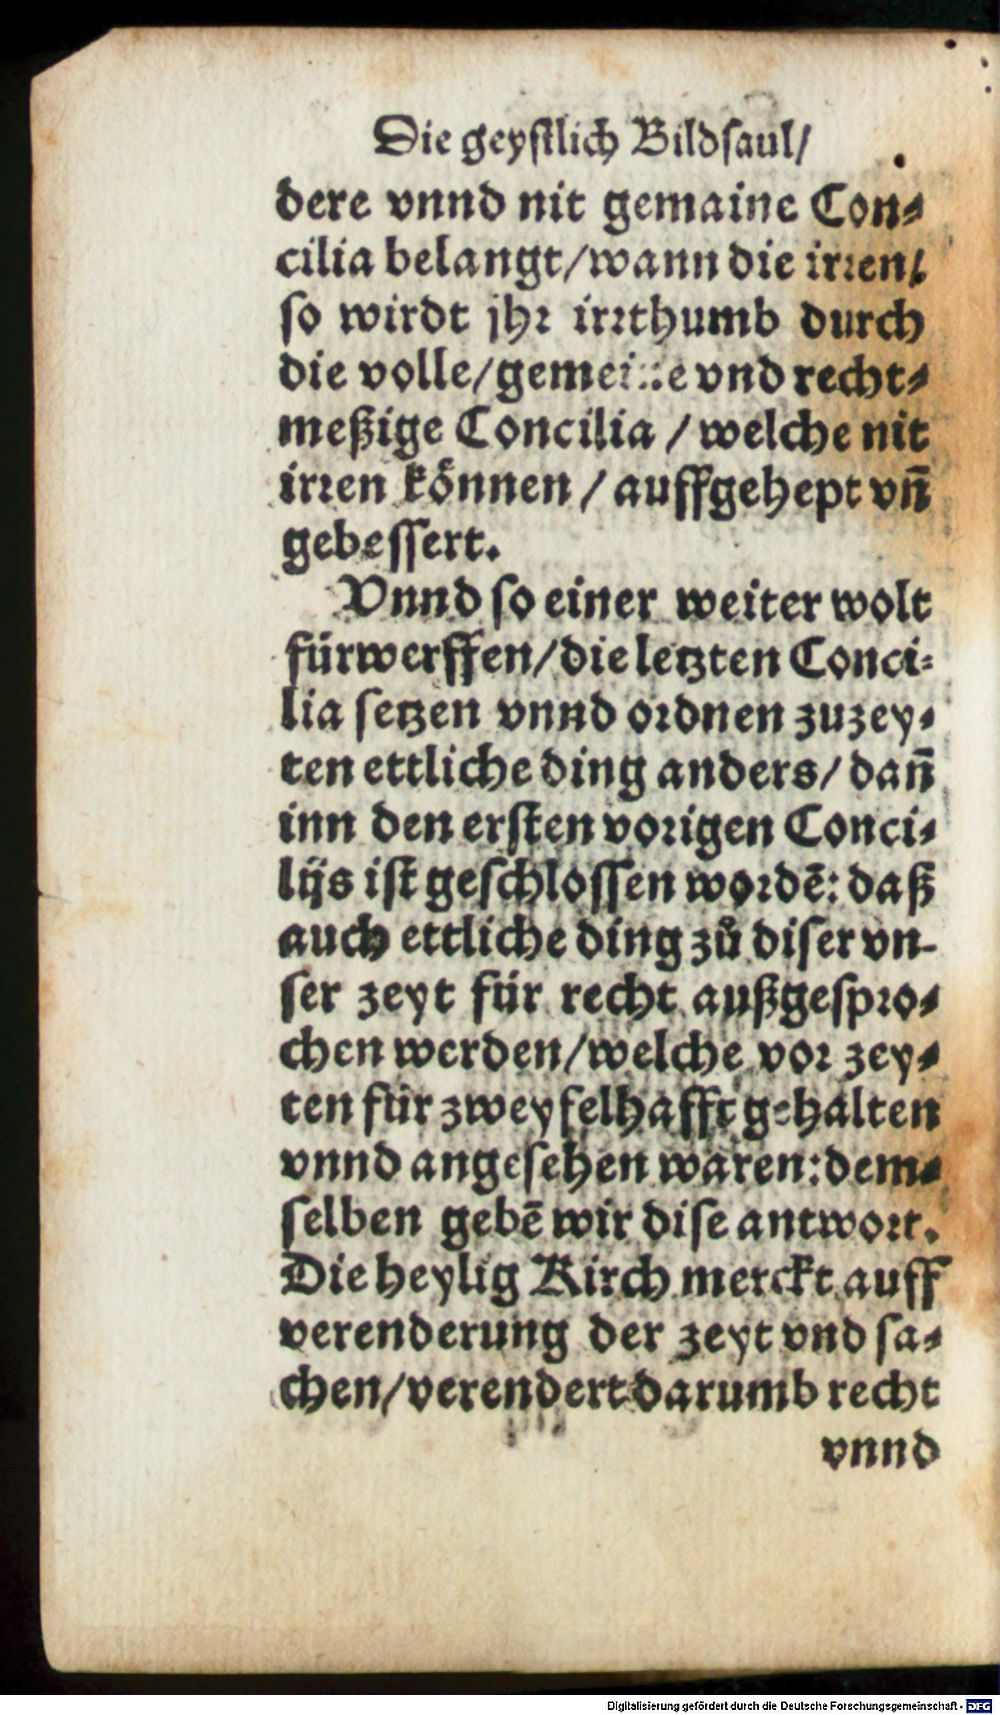 Die geyſtlich Bildſaul/
dere vnnd nit gemaine Con⸗
cilia belangt/wann die irꝛen/
ſo wirdt jhꝛ irꝛthumb durch
die volle/gemeine vnd recht⸗
meßige Concilia / welche nit
irꝛen koͤnnen / auffgehept vñ
gebeſſert.
Vnnd ſo einer weiter wolt
fürwerffen/die letzten Conci⸗
lia ſetzen vnnd oꝛdnen zuzey⸗
ten ettliche ding anders/ dañ
inn den erſten voꝛigen Conci⸗
lijs iſt geſchloſſen woꝛdẽ: daß
auch ettliche ding zů diſer vn⸗
ſer zeyt für recht außgeſpꝛo⸗
chen werden/welche voꝛ zey⸗
ten für zweyfelhafft gehalten
vnnd angeſehen waren: dem⸗
ſelben gebẽ wir diſe antwoꝛt.
Die heylig Kirch merckt auff
verenderung der zeyt vnd ſa⸗
chen/verendert darumb recht
vnnd
Digitalisierung gefördert durch die Deutsche Forschungsgemeinschaft - DFG